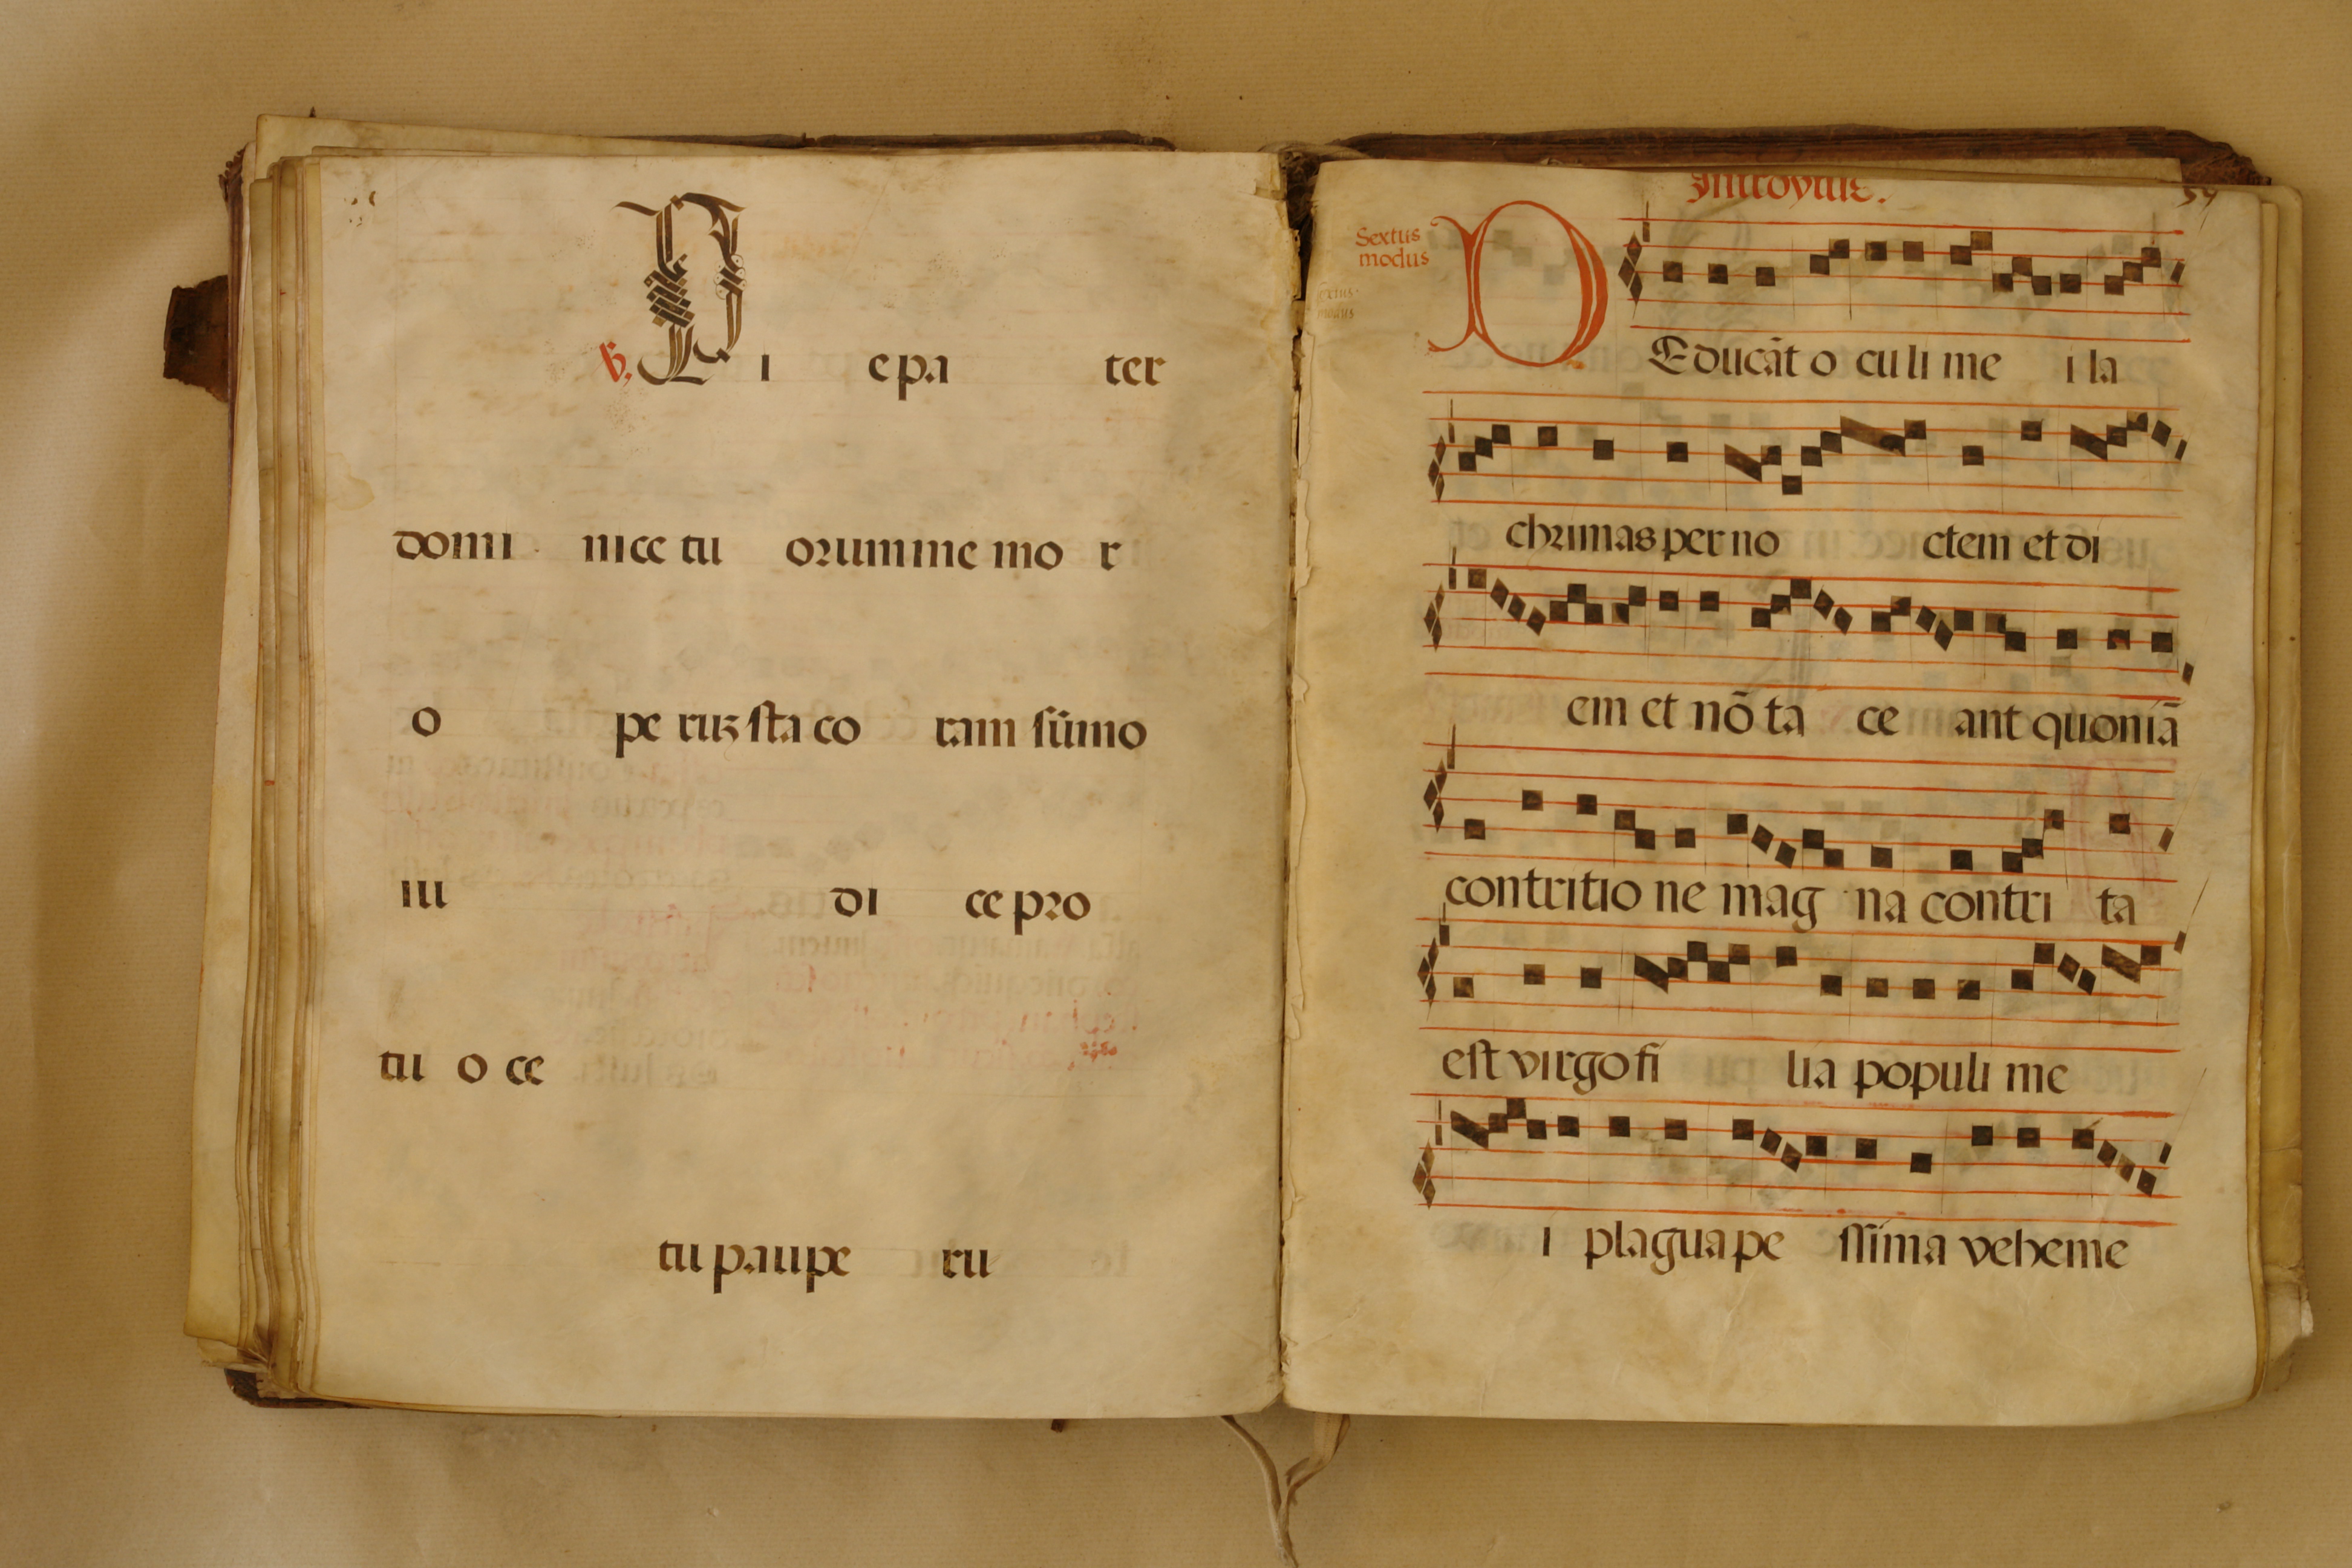 ℣. Pi e pa ter
domi nice tu orum me mo r
o pe ruꝫ sta co ram sūmo
iu di ce pro
tu o ce
tu paupe ru
Introytus. 59
Sextus
modus
DEducāt o culi me i la
chrimas per no ctem et di
em et nō ta ce ant quoniā
contritio ne mag na contri ta
est virgo fi lia populi me
i plagua pe ssima veheme